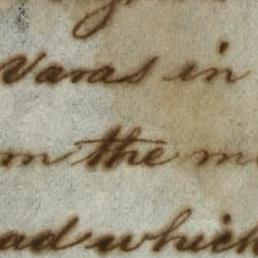 Varas in
m the m
ad which